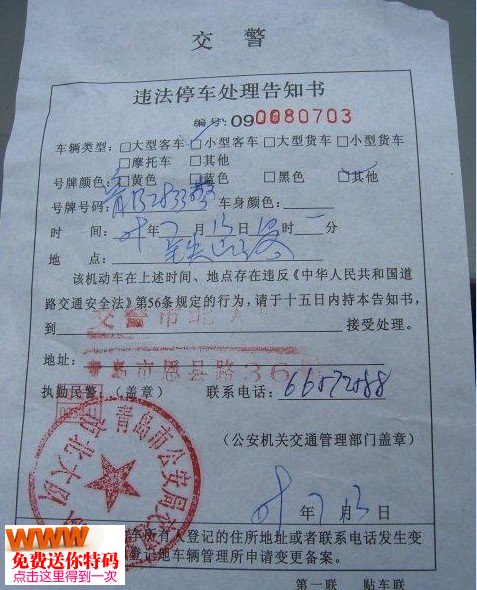 交 警
违法停车处理告知书
编号: 090080703
车辆类型: □大型客车 □小型客车 □大型货车 □小型货车
□摩托车 □其他
号牌颜色: □黄色 □蓝色 □黑色 □其他
号牌号码: 车身颜色:
时 间: 年 7 月 13 日 时 分
地 点:
该机动车在上述时间、地点存在违反《中华人民共和国道
路交通安全法》第56条规定的行为,请于十五日内持本告知书,
到 交警市北大队 接受处理。
地址: 青岛市恩县路36号
执勤民警: (盖章) 联系电话: 66572088
青岛市公安局
市北大队
(公安机关交通管理部门盖章)
年 7 月 13 日
所有人登记的住所地址或者联系电话发生变
登记地车辆管理所申请变更备案。
第一联 贴车联
WWW
免费送你特码
点击这里得到一次